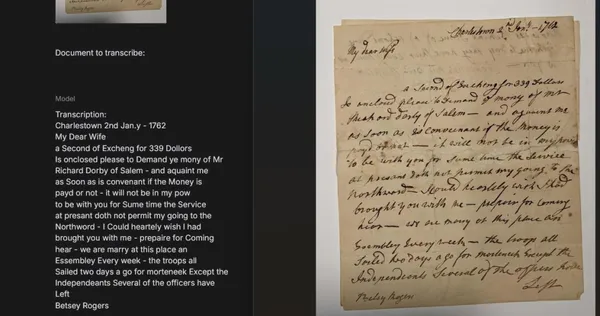 Document to transcribe:
Model
Transcription:
Charlestown 2nd Jan.y - 1762
My Dear Wife
a Second of Excheng for 339 Dollors
Is onclosed please to Demand ye mony of Mr
Richard Dorby of Salem - and aquaint me
as Soon as is convenant if the Money is
payd or not - it will not be in my pow
to be with you for Sume time the Service
at presant doth not permit my going to the
Northword - I Could heartely wish I had
brought you with me - prepaire for Coming
hear - we are marry at this place an
Essembley Every week - the troops all
Sailed two days a go for morteneek Except the
Independeants Several of the officers have
Left
Betsey Rogers
Charlestown 2d Jany - 1762
My dear wife
a Second of Excheng for 339 Dollors
Is enclosed please to Demand ye mony of Mr
Richard Derby of Salem — and aquaint me
as Soon as is Convenant if the Money is
payd or not — it will not be in my pow
to be with you for Sume time the Service
at presant doth not permit my going to the
Northword — I Could heartely wish I had
brought you with me — prepair for Coming
hear — we are mery at this place an
Essembley Every week — the troops all
Sailed two days a go for morteneck Except the
Independants Several of the officers have
Left
Betsey Rogers